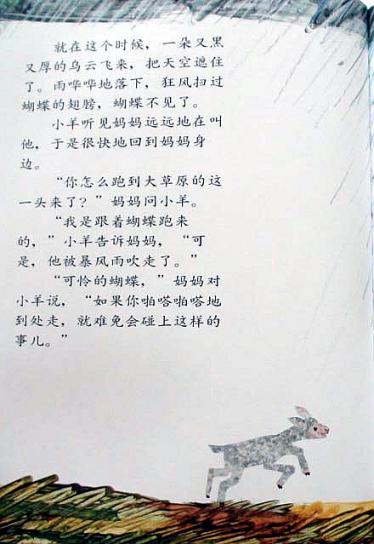 就在这个时候，一朵又黑
又厚的乌云飞来，把天空遮住
了。雨哗哗地落下，狂风扫过
蝴蝶的翅膀，蝴蝶不见了。
小羊听见妈妈远远地在叫
他，于是很快地回到妈妈身
边。
“你怎么跑到大草原的这
一头来了？”妈妈问小羊。
“我是跟着蝴蝶跑来
的，”小羊告诉妈妈，“可
是，他被暴风雨吹走了。”
“可怜的蝴蝶，”妈妈对
小羊说，“如果你啪嗒啪嗒地
到处走，就难免会碰上这样的
事儿。”